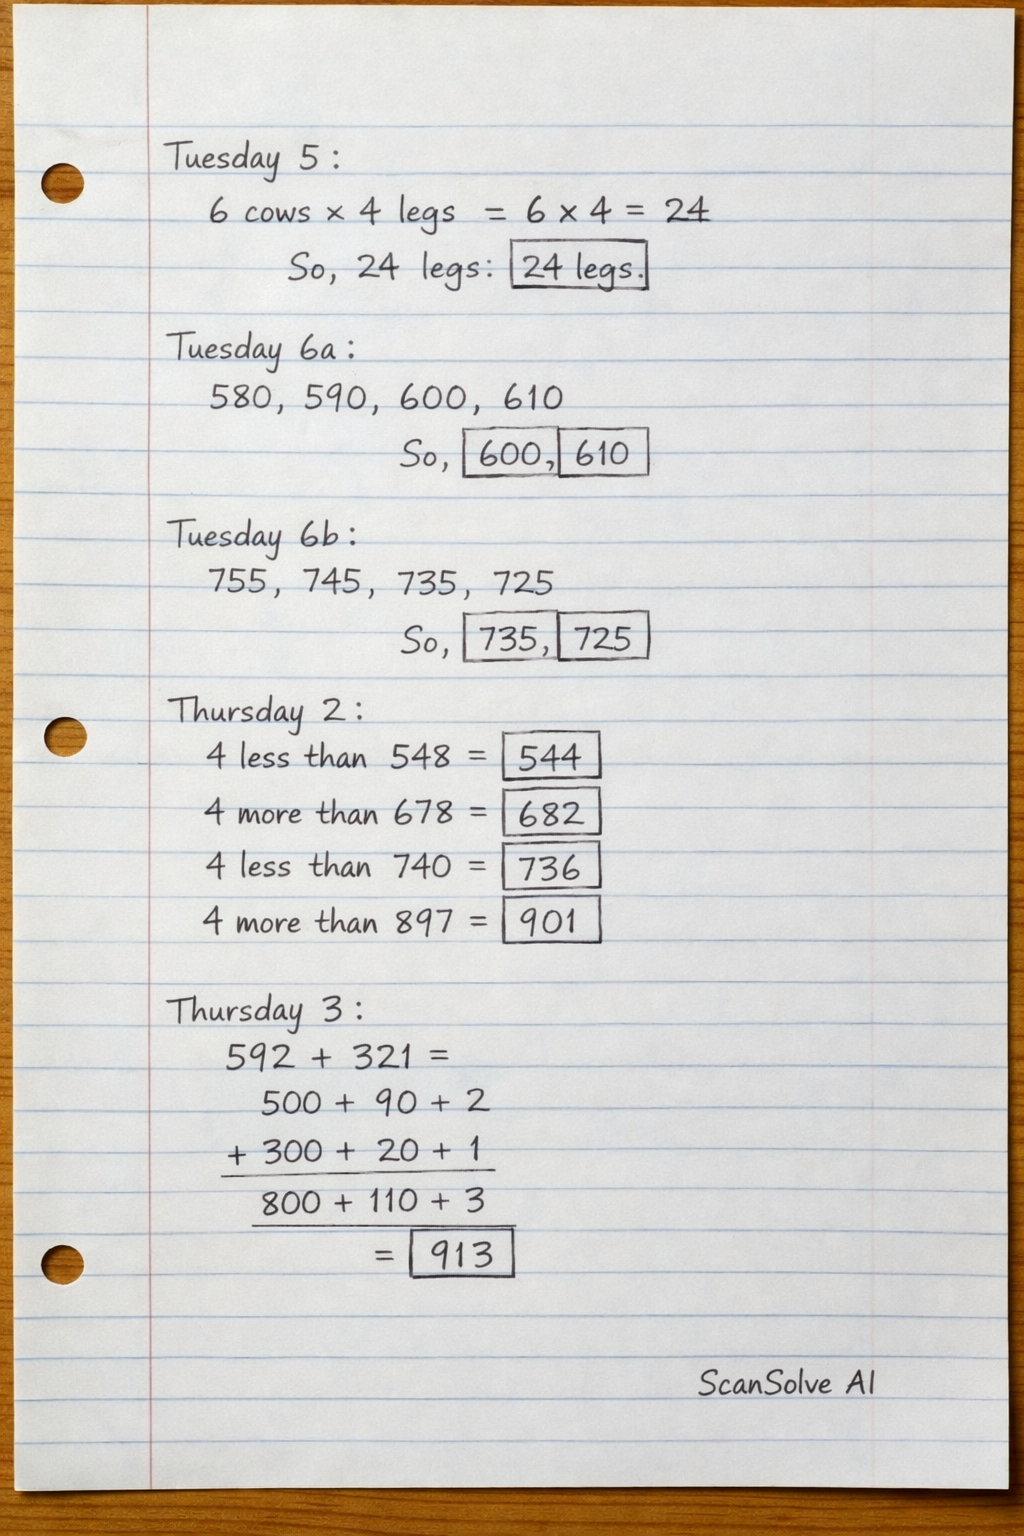 Tuesday 5:
6 cows × 4 legs = 6 × 4 = 24
So, 24 legs: 24 legs.
Tuesday 6a:
580, 590, 600, 610
So, 600, 610
Tuesday 6b:
755, 745, 735, 725
So, 735, 725
Thursday 2:
4 less than 548 = 544
4 more than 678 = 682
4 less than 740 = 736
4 more than 897 = 901
Thursday 3:
592 + 321 =
500 + 90 + 2
+ 300 + 20 + 1
800 + 110 + 3
= 913
ScanSolve AI